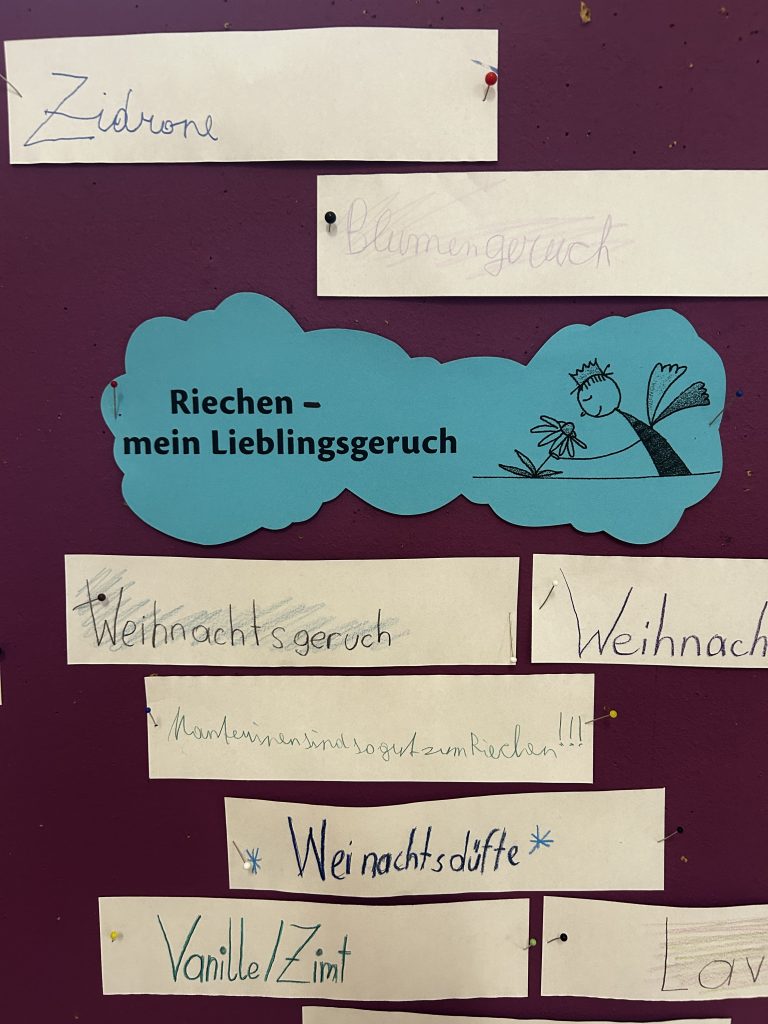 Zidrone
Blumengeruch
Riechen –
mein Lieblingsgeruch
Weihnachtsgeruch
Weihnach
sind so gut zum Riechen!!!
* Weinachtsdüfte *
Vanille/Zimt
Lav